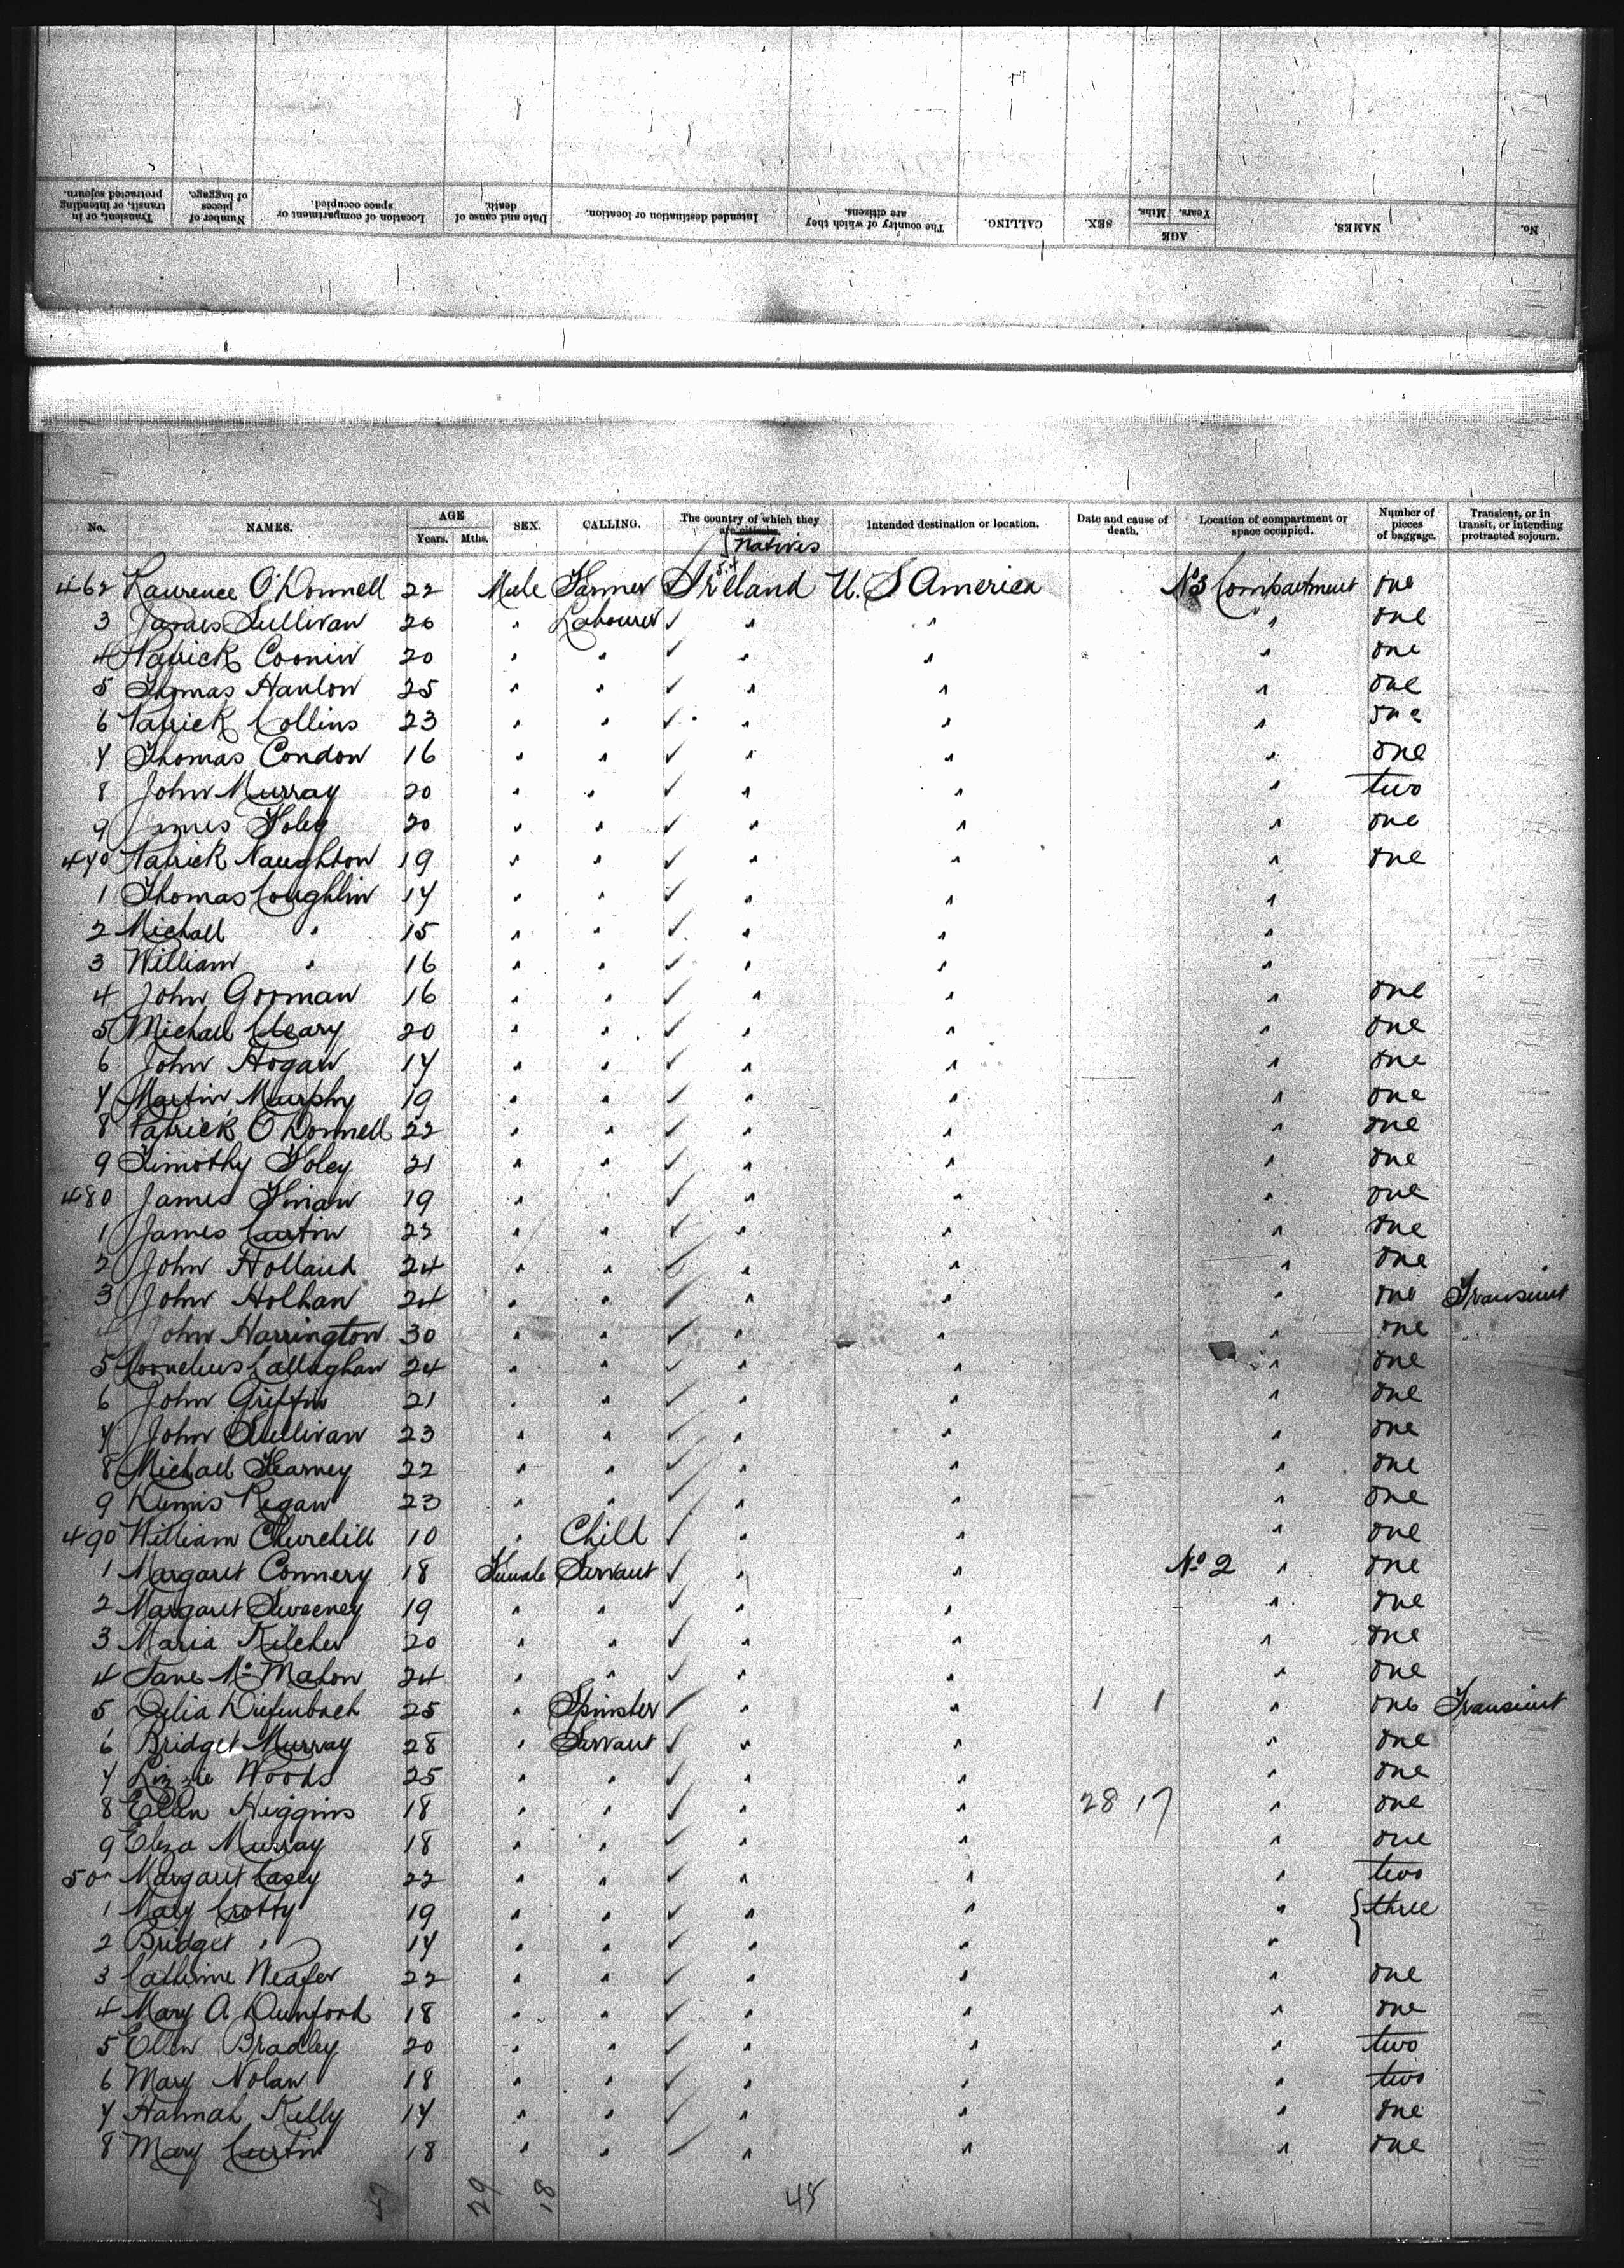 No. NAMES. AGE Years. Mths. SEX. CALLING. The country of which they are citizens. Intended destination or location. Date and cause of death. Location of compartment or space occupied. Number of pieces of baggage. Transient, or in transit, or intending protracted sojourn.
No. NAMES. AGE Years. Mths. SEX. CALLING. The country of which they are citizens. Natives Intended destination or location. Date and cause of death. Location of compartment or space occupied. Number of pieces of baggage. Transient, or in transit, or intending protracted sojourn.
462 Lawrence O'Donnell 22 Male Farmer Ireland U. S America No 3 Compartment one
3 James Sullivan 26 " Labourer ✓ " " " one
4 Patrick Cronin 20 " " ✓ " " " one
5 Thomas Hanlon 25 " " ✓ " " " one
6 Patrick Collins 23 " " ✓ " " " one
7 Thomas Condon 16 " " ✓ " " " one
8 John Murray 20 " " ✓ " " " two
9 James Foley 20 " " ✓ " " " one
470 Patrick Naughton 19 " " ✓ " " " one
1 Thomas Coughlin 17 " " ✓ " " "
2 Michael " 15 " " ✓ " " "
3 William " 16 " " ✓ " " "
4 John Gorman 16 " " ✓ " " " one
5 Michael Cleary 20 " " ✓ " " " one
6 John Hogan 17 " " ✓ " " " one
7 Martin Murphy 19 " " ✓ " " " one
8 Patrick O'Donnell 22 " " ✓ " " " one
9 Timothy Foley 21 " " ✓ " " " one
480 James 19 " " ✓ " " " one
1 James Curtin 22 " " ✓ " " " one
2 John Holland 24 " " ✓ " " " one
3 John Holhan 24 " " ✓ " " " one Transient
4 John Harrington 30 " " ✓ " " " one
5 Cornelius Callaghan 24 " " ✓ " " " one
6 John Griffin 21 " " ✓ " " " one
7 John Sullivan 23 " " ✓ " " " one
8 Michael Kearney 22 " " ✓ " " " one
9 Dennis Regan 23 " " ✓ " " " one
490 William Churchill 10 " Child ✓ " " " one
1 Margaret Connery 18 Female Servant ✓ " " No 2 " one
2 Margaret Sweeney 19 " " ✓ " " " one
3 Maria Kilcher 20 " " ✓ " " " one
4 Jane McMahon 24 " " ✓ " " " one
5 Delia Diefenbach 25 " Spinster ✓ " " 1 1 " one Transient
6 Bridget Murray 28 " Servant ✓ " " " one
7 Lizzie Woods 25 " " ✓ " " " one
8 Ellen Higgins 18 " " ✓ " " 28 17 " one
9 Eliza Murray 18 " " ✓ " " " one
500 Margaret Casey 22 " " ✓ " " " two
1 Mary Crotty 19 " " ✓ " " " three
2 Bridget " 17 " " ✓ " " "
3 Catherine Weafer 22 " " ✓ " " " one
4 Mary A Dunford 18 " " ✓ " " " one
5 Ellen Bradley 20 " " ✓ " " " two
6 Mary Nolan 18 " " ✓ " " " two
7 Hannah Kelly 17 " " ✓ " " " one
8 Mary Curtin 18 " " ✓ " " " one
47 29 18 45